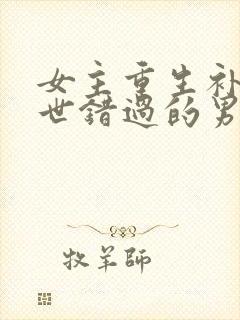 女主重生补
世错过的男
牧羊師